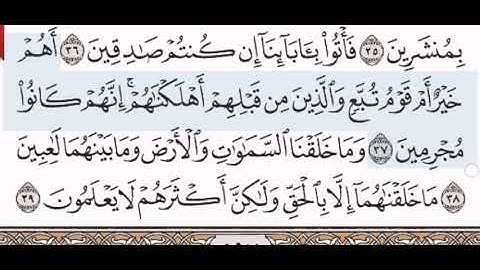 بِمُنشَرِينَ ٣٥ فَأْتُوا۟ بِـَٔابَآئِنَآ إِن كُنتُمْ صَٰدِقِينَ ٣٦ أَهُمْ
خَيْرٌ أَمْ قَوْمُ تُبَّعٍ وَٱلَّذِينَ مِن قَبْلِهِمْ أَهْلَكْنَٰهُمْ ۖ إِنَّهُمْ كَانُوا۟
مُجْرِمِينَ ٣٧ وَمَا خَلَقْنَا ٱلسَّمَٰوَٰتِ وَٱلْأَرْضَ وَمَا بَيْنَهُمَا لَٰعِبِينَ
٣٨ مَا خَلَقْنَٰهُمَآ إِلَّا بِٱلْحَقِّ وَلَٰكِنَّ أَكْثَرَهُمْ لَا يَعْلَمُونَ ٣٩